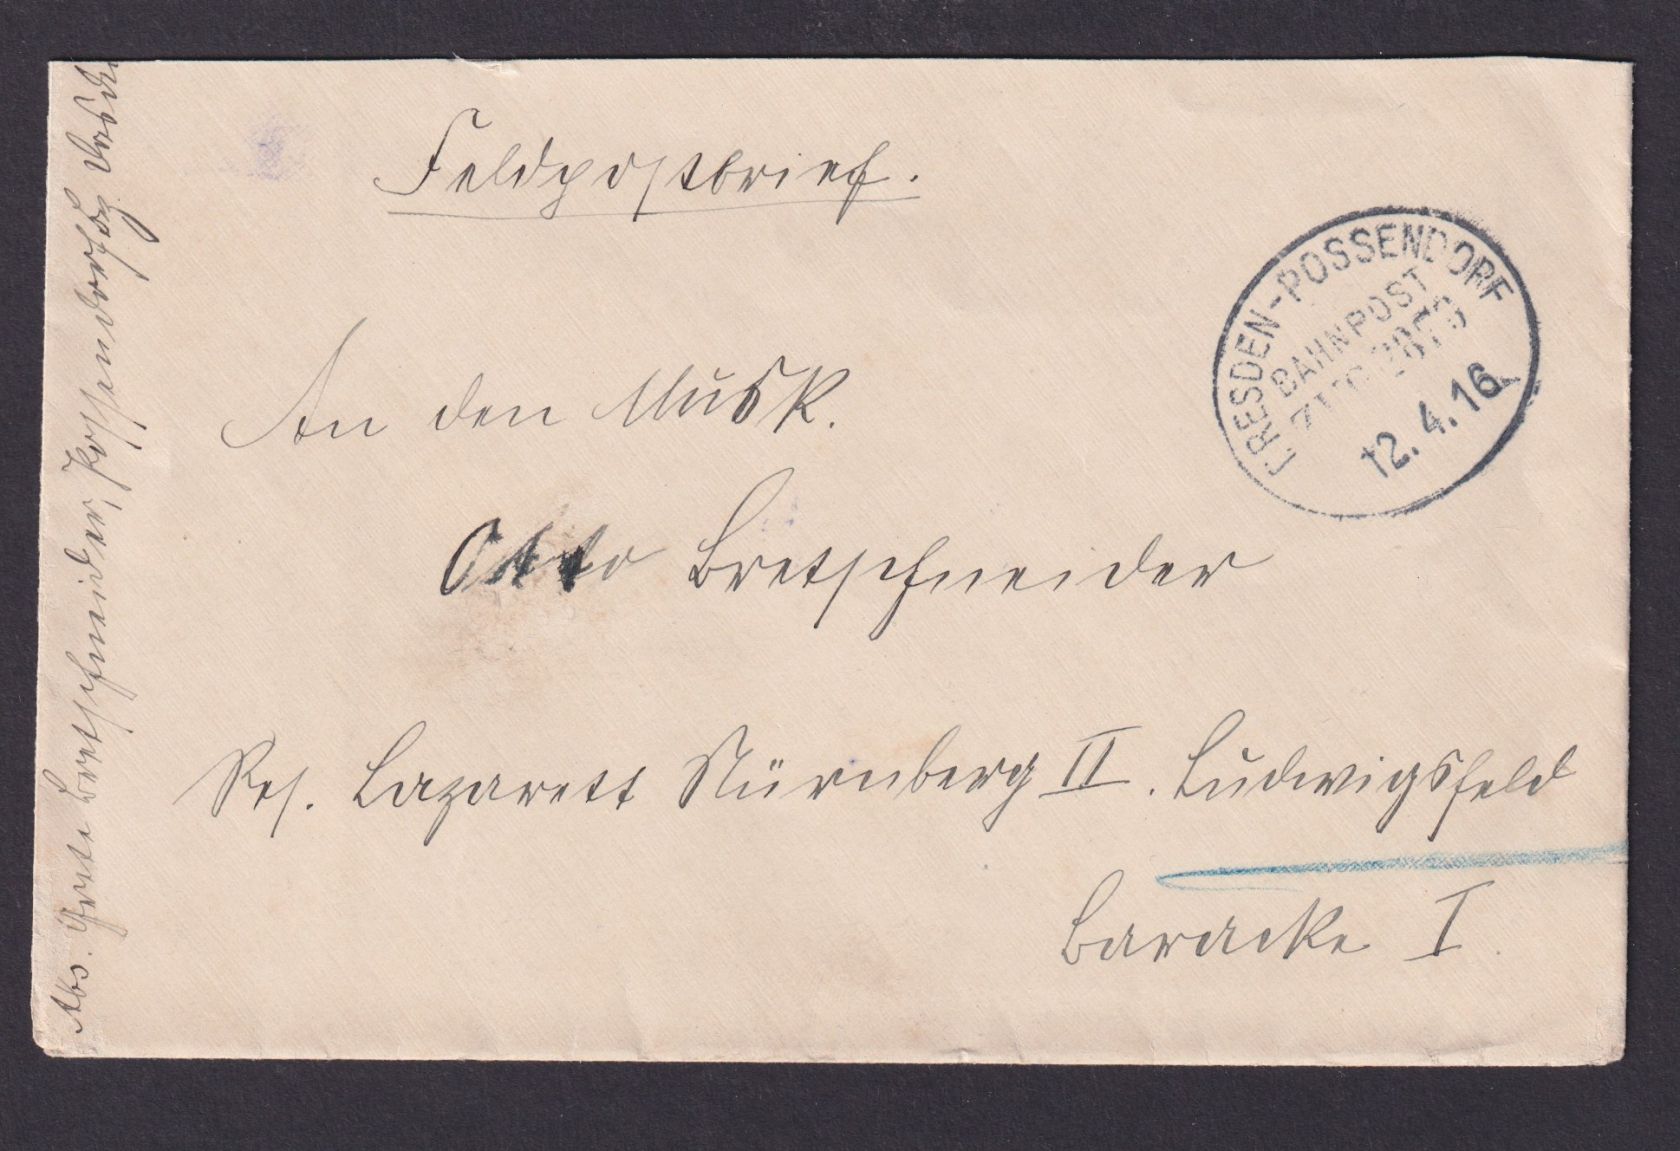 Feldpostbrief.
DRESDEN-POSSENDORF
BAHNPOST
ZUG
12.4.16
An den Musk.
Otto Bretschneider
Res. Lazarett Nürnberg II. Ludwigsfeld
Baracke I.
Abs. Grete Bretschneider, Possendorf